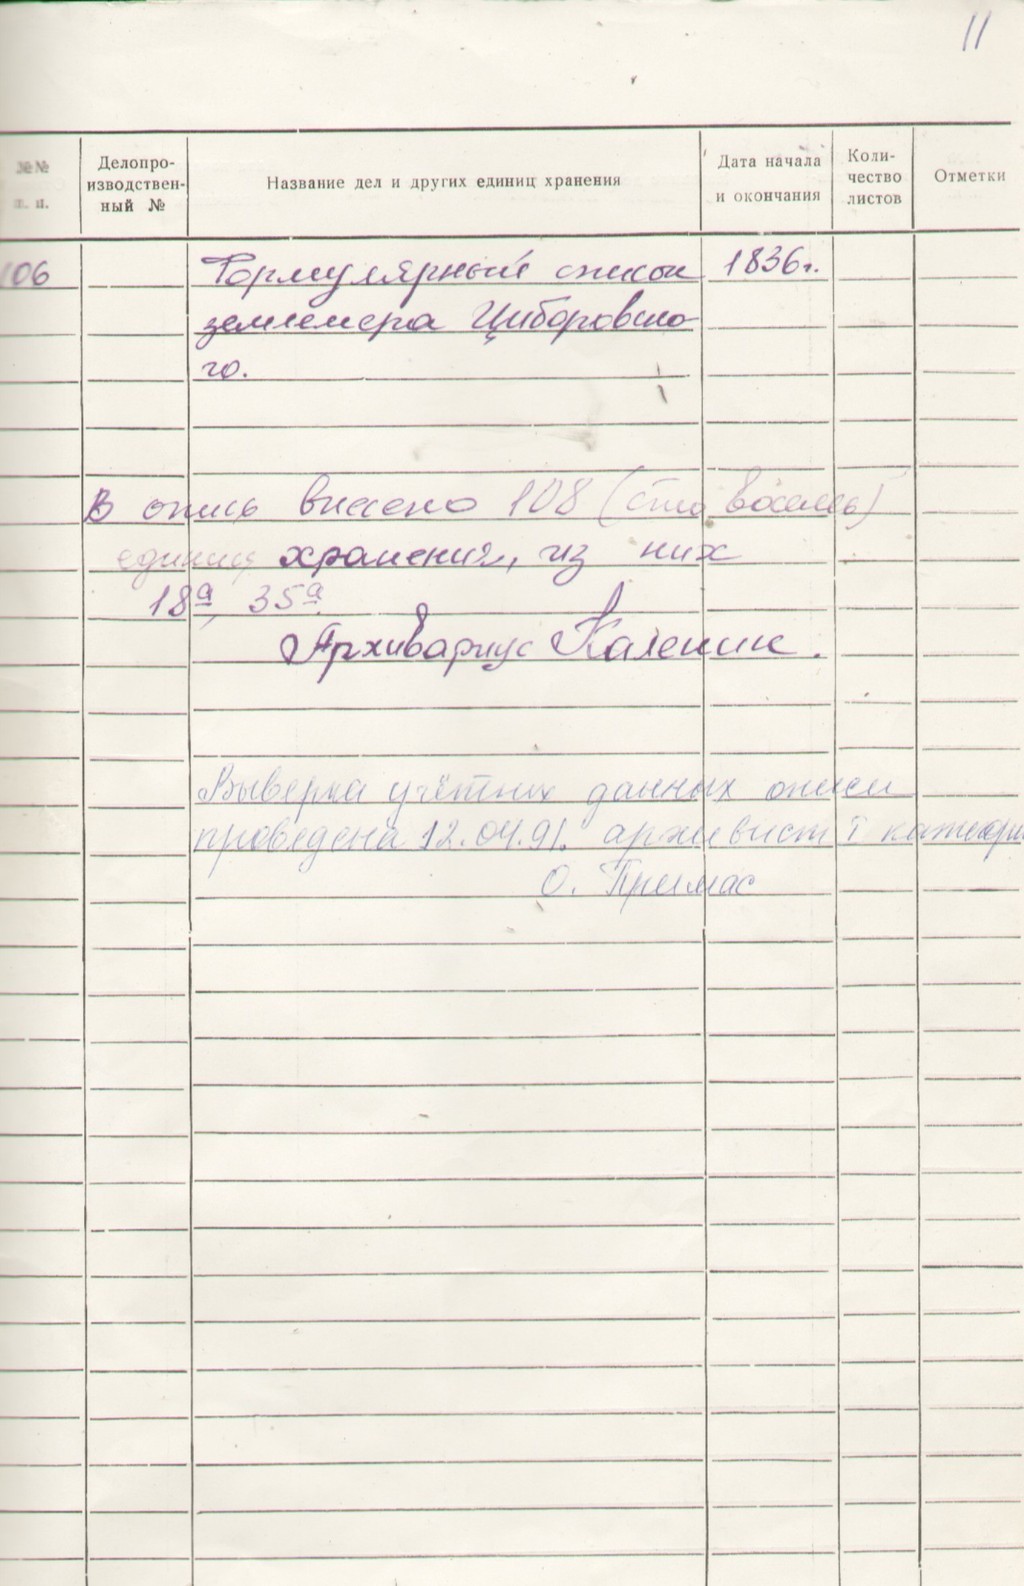 11
№№ п. п.
Делопро-
изводствен-
ный №
Название дел и других единиц хранения
Дата начала
и окончания
Коли-
чество
листов
Отметки
106 Формулярный список 1836г.
землемера Циборовско-
го.
В опись внесено 108 (сто восемь)
единиц хранения, из них
18а, 35а.
Архивариус Каленик.
Выверка учётных данных описи
проведена 12.04.91. архивист I категори
О. Примас